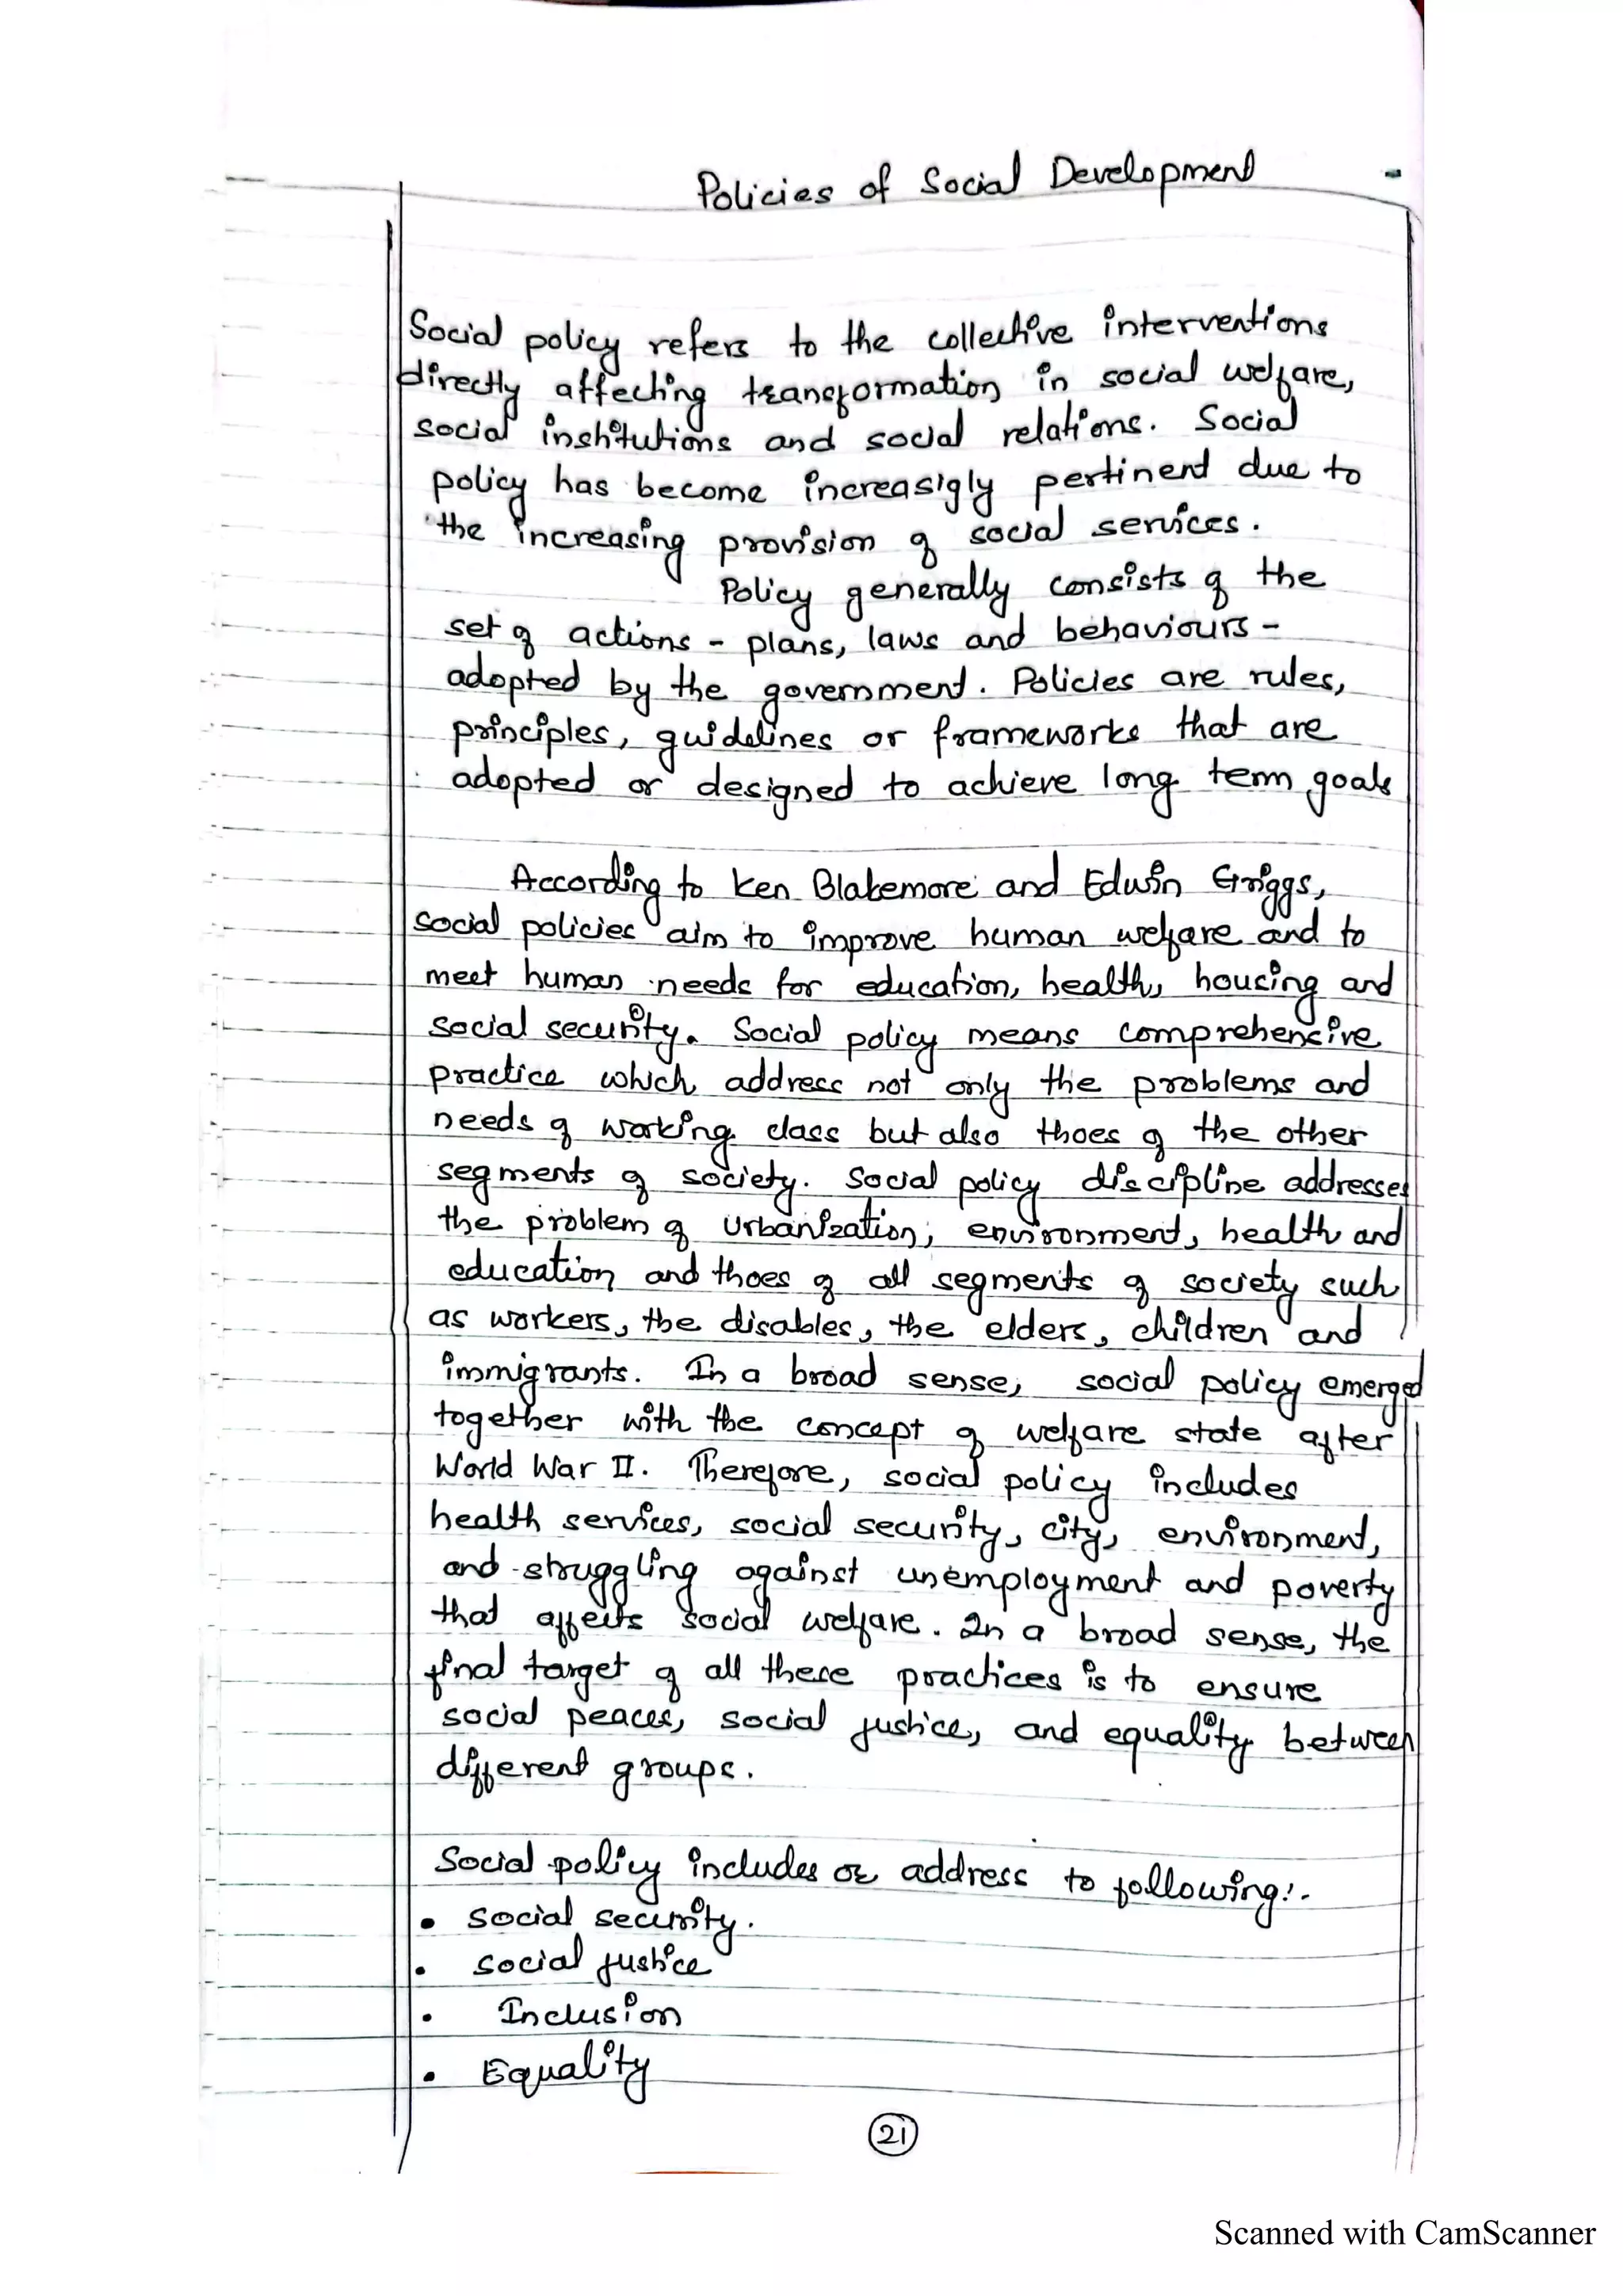 Policies of Social Development
Social policy refers to the collective interventions
directly affecting transformation in social welfare,
social institutions and social relations. Social
policy has become increasigly pertinent due to
the increasing provision of social services.
Policy generally consists of the
set of actions - plans, laws and behaviours -
adopted by the government. Policies are rules,
principles, guidelines or frameworks that are
adopted or designed to achieve long term goals
According to Ken Blakemore and Edwin Griggs,
social policies aim to improve human welfare and to
meet human needs for education, health, housing and
social security. Social policy means comprehensive
practice which address not only the problems and
needs of working class but also thoes of the other
segments of society. Social policy discipline addresses
the problem of urbanization, environment, health and
education and thoes of all segments of society such
as workers, the disables, the elders, children and
immigrants. In a broad sense, social policy emerged
together with the concept of welfare state after
World War II. Therefore, social policy includes
health services, social security, city, environment,
and struggling against unemployment and poverty
that affects social welfare. In a broad sense, the
final target of all these practices is to ensure
social peaces, social justice, and equality between
different groups.
Social policy includes or address to following:-
• Social security.
• Social justice
• Inclusion
• Equality
21
Scanned with CamScanner